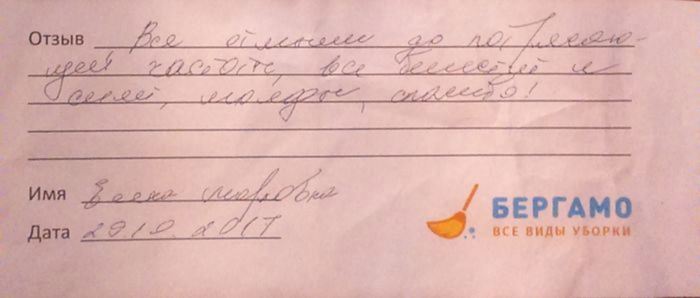 Отзыв Все отмыли до потрясаю-
щей чистоты, все блестит и
сияет, молодцы, спасибо!
Имя Елена
Дата 29.10.2017
БЕРГАМО
ВСЕ ВИДЫ УБОРКИ